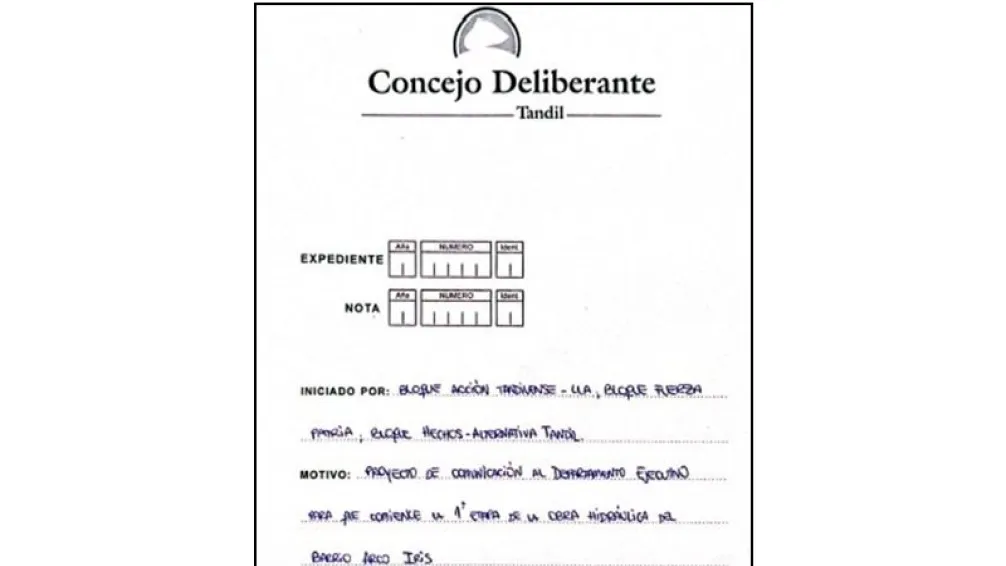 Concejo Deliberante
Tandil
EXPEDIENTE Año NUMERO Ident.
NOTA Año NUMERO Ident.
INICIADO POR: BLOQUE ACCIÓN TANDILENSE - LLA, BLOQUE FUERZA
PATRIA, BLOQUE HECHOS-ALTERNATIVA TANDIL.
MOTIVO: PROYECTO DE COMUNICACIÓN AL DEPARTAMENTO EJECUTIVO
PARA QUE COMIENCE LA 1° ETAPA DE LA OBRA HIDRÁULICA DEL
BARRIO ARCO IRIS